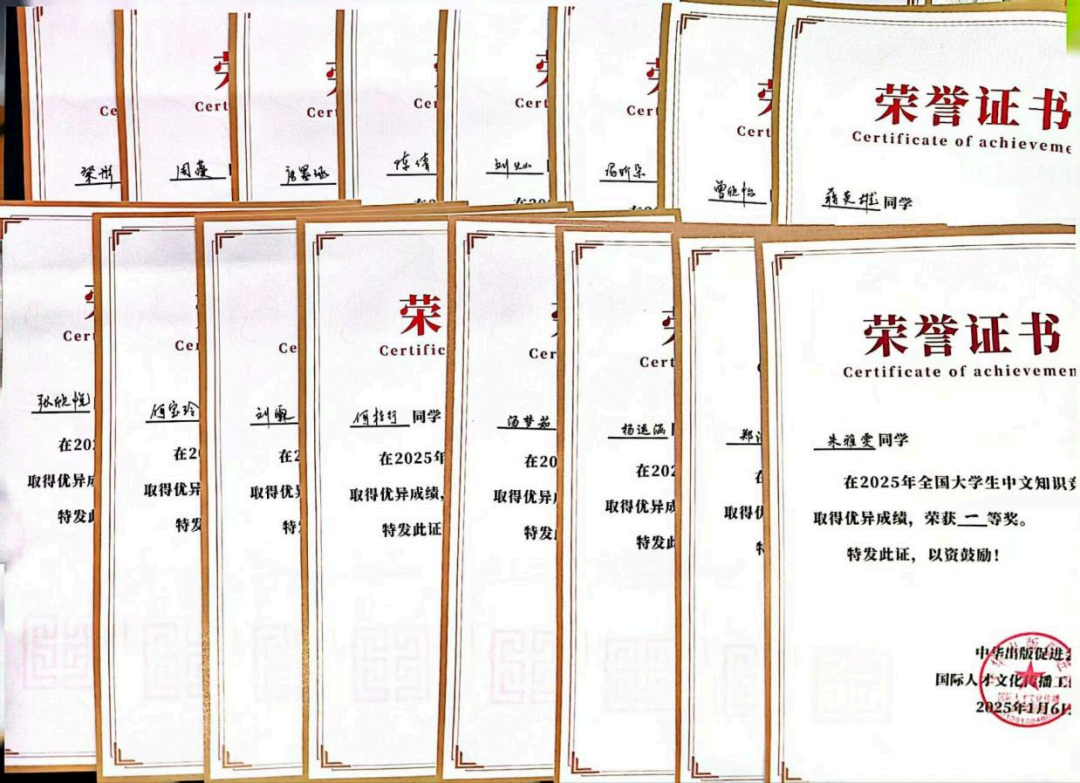 Ce
梁
Cert
周蔓
Cert
唐思涵
Cer
陈倩
Cert
刘
Cert
Cert
曾晓怡
荣誉证书
Certificate of achieveme
蒋英雄同学
Cert
张欣悦
在202
取得优异成
特发此
Ce
何宝玲
在20
取得优异
特发
Ce
在2
取得优异
特
荣
Certific
同学
在2025年
取得优异成绩,
特发此证
Cer
汤梦茹
在20
取得优异
特发
Cert
杨运涵
在202
取得优异成
特发此
郑
在
取得优
荣誉证书
Certificate of achievemen
朱雅雯同学
在2025年全国大学生中文知识竞
取得优异成绩，荣获一等奖。
特发此证，以资鼓励！
中华出版促进会
国际人才文化传播工
2025年1月6日